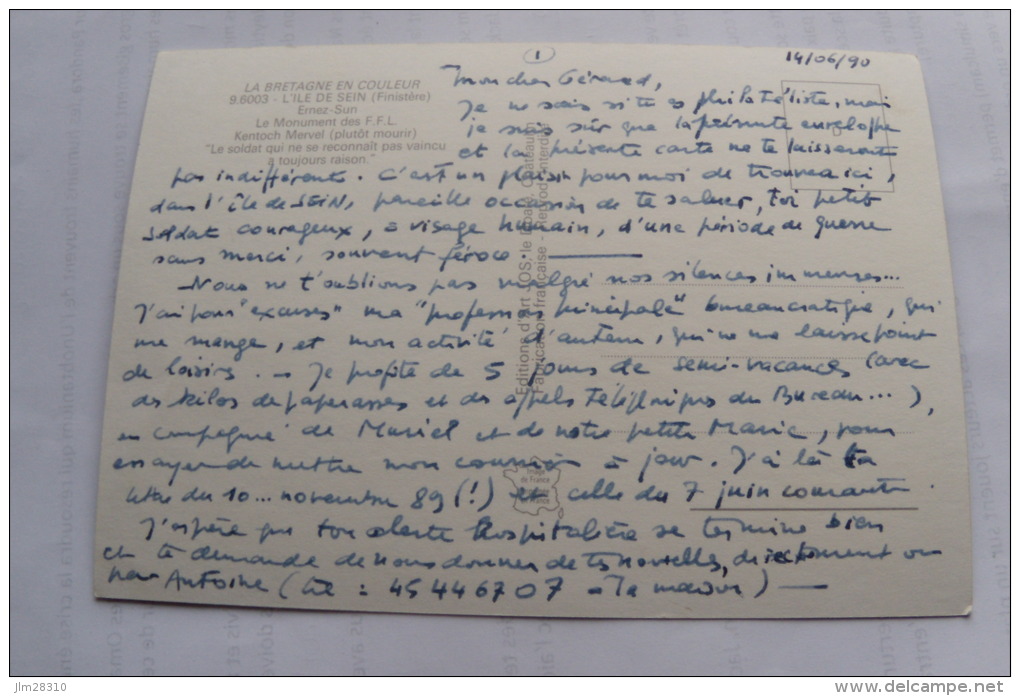 1
14/06/90
LA BRETAGNE EN COULEUR
9.6003 - L'ILE DE SEIN (Finistère)
Ernez-Sun
Le Monument des F.F.L.
Kentoch Mervel (plutôt mourir)
"Le soldat qui ne se reconnaît pas vaincu
a toujours raison"
Mon cher Gérard,
Je ne sais si tu es philatéliste, mais
je suis sûr que la présente enveloppe
et la présente carte ne te laisseront
pas indifférent. C'est un plaisir pour moi de trouver ici,
dans l'île de SEIN, pareille occasion de te saluer, toi petit
soldat courageux, à visage humain, d'une période de guerre
sans merci, souvent féroce.
Nous ne t'oublions pas malgré nos silences immenses...
J'ai pour "excuses" ma "profession principale" bureaucratique, qui
me mange, et mon activité d'auteur, qui ne me laisse point
de loisirs. - Je profite de 5 jours de semi-vacances (avec
des kilos de paperasses et des appels téléphoniques du Bureau...),
en compagnie de Muriel et de notre petite Marie, pour
essayer de mettre mon courrier à jour. J'ai là ta
lettre du 10... novembre 89 (!) et celle du 7 juin courant.
J'espère que ton alerte hospitalière se termine bien
et te demande de nous donner de tes nouvelles, directement ou
par Antoine (tél : 45 44 67 07 - la maison)
Editions d'Art JOS, le Doaré, Châteaulin
Fabrication française - Reproduction interdite
jlm28310
www.delcampe.net